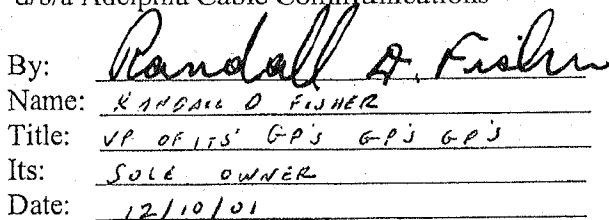 d/b/a Adelphia Cable Communications
By: Randall D. Fisher
Name: RANDALL D FISHER
Title: VP OF ITS' GP'S GP'S GP'S
Its: SOLE OWNER
Date: 12/10/01